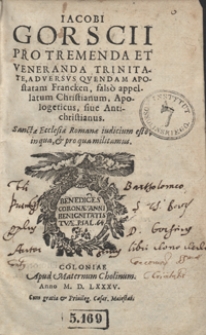 IACOBI
GORSCII
PRO TREMENDA ET
VENERANDA TRINITA-
TE, ADVERSVS QVENDAM APO-
statam Francken, falsò appel-
latum Christianum, Apo-
logeticus, siue Anti-
christianus.
Sancta Ecclesia Romana iudicium esto
in qua, & pro qua militamus.
BENEDICES
CORONÆ ANNI
BENIGNITATIS
TVÆ. PSAL. 64.
Bartholomeo
D. Gorscius
libri
COLONIAE
Apud Maternum Cholinum.
Anno M. D. LXXXV.
Cum gratia & Priuileg. Cæsar. Maiestatis.
5.169